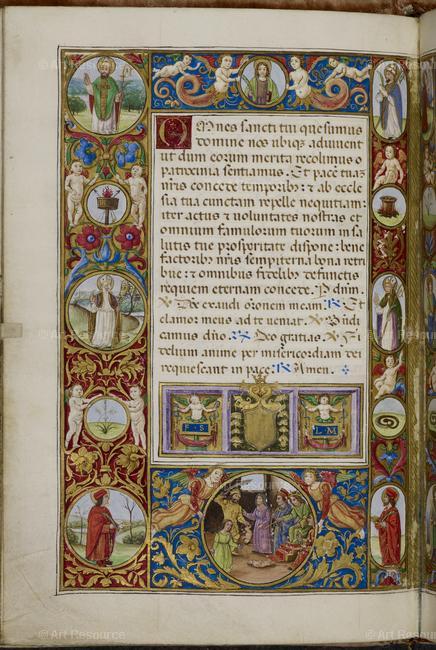 Omnes sancti tui quesumus
domine nos ubiqz adiuuent
ut dum eorum merita recolimus
patrocinia sentiamus. Et pacē tuaȝ
nr̄is concede temporibȝ: ⁊ ab eccle
sia tua cunctam repelle nequitiam:
iter actus ⁊ uoluntates nostras et
omnium famulorum tuorum in sa
lutis tue prosperitate dispone: bene
factoribȝ nr̄is sempiterna bona retri
bue: ⁊ omnibus fidelibȝ defunctis
requiem eternam concede. P dn̄m.
℣ Dne exaudi orōnem meam. ℟ Et
clamor meus ad te ueniat. ℣ Bn̄di
camus dn̄o. ℟ Deo gratias. ℣ Fi
delium anime per misericordiam dei
requiescant in pace. ℟ Amen.
F · S
L · M
© Art Resource
© Art Resource
© Art Resource
© Art Resource